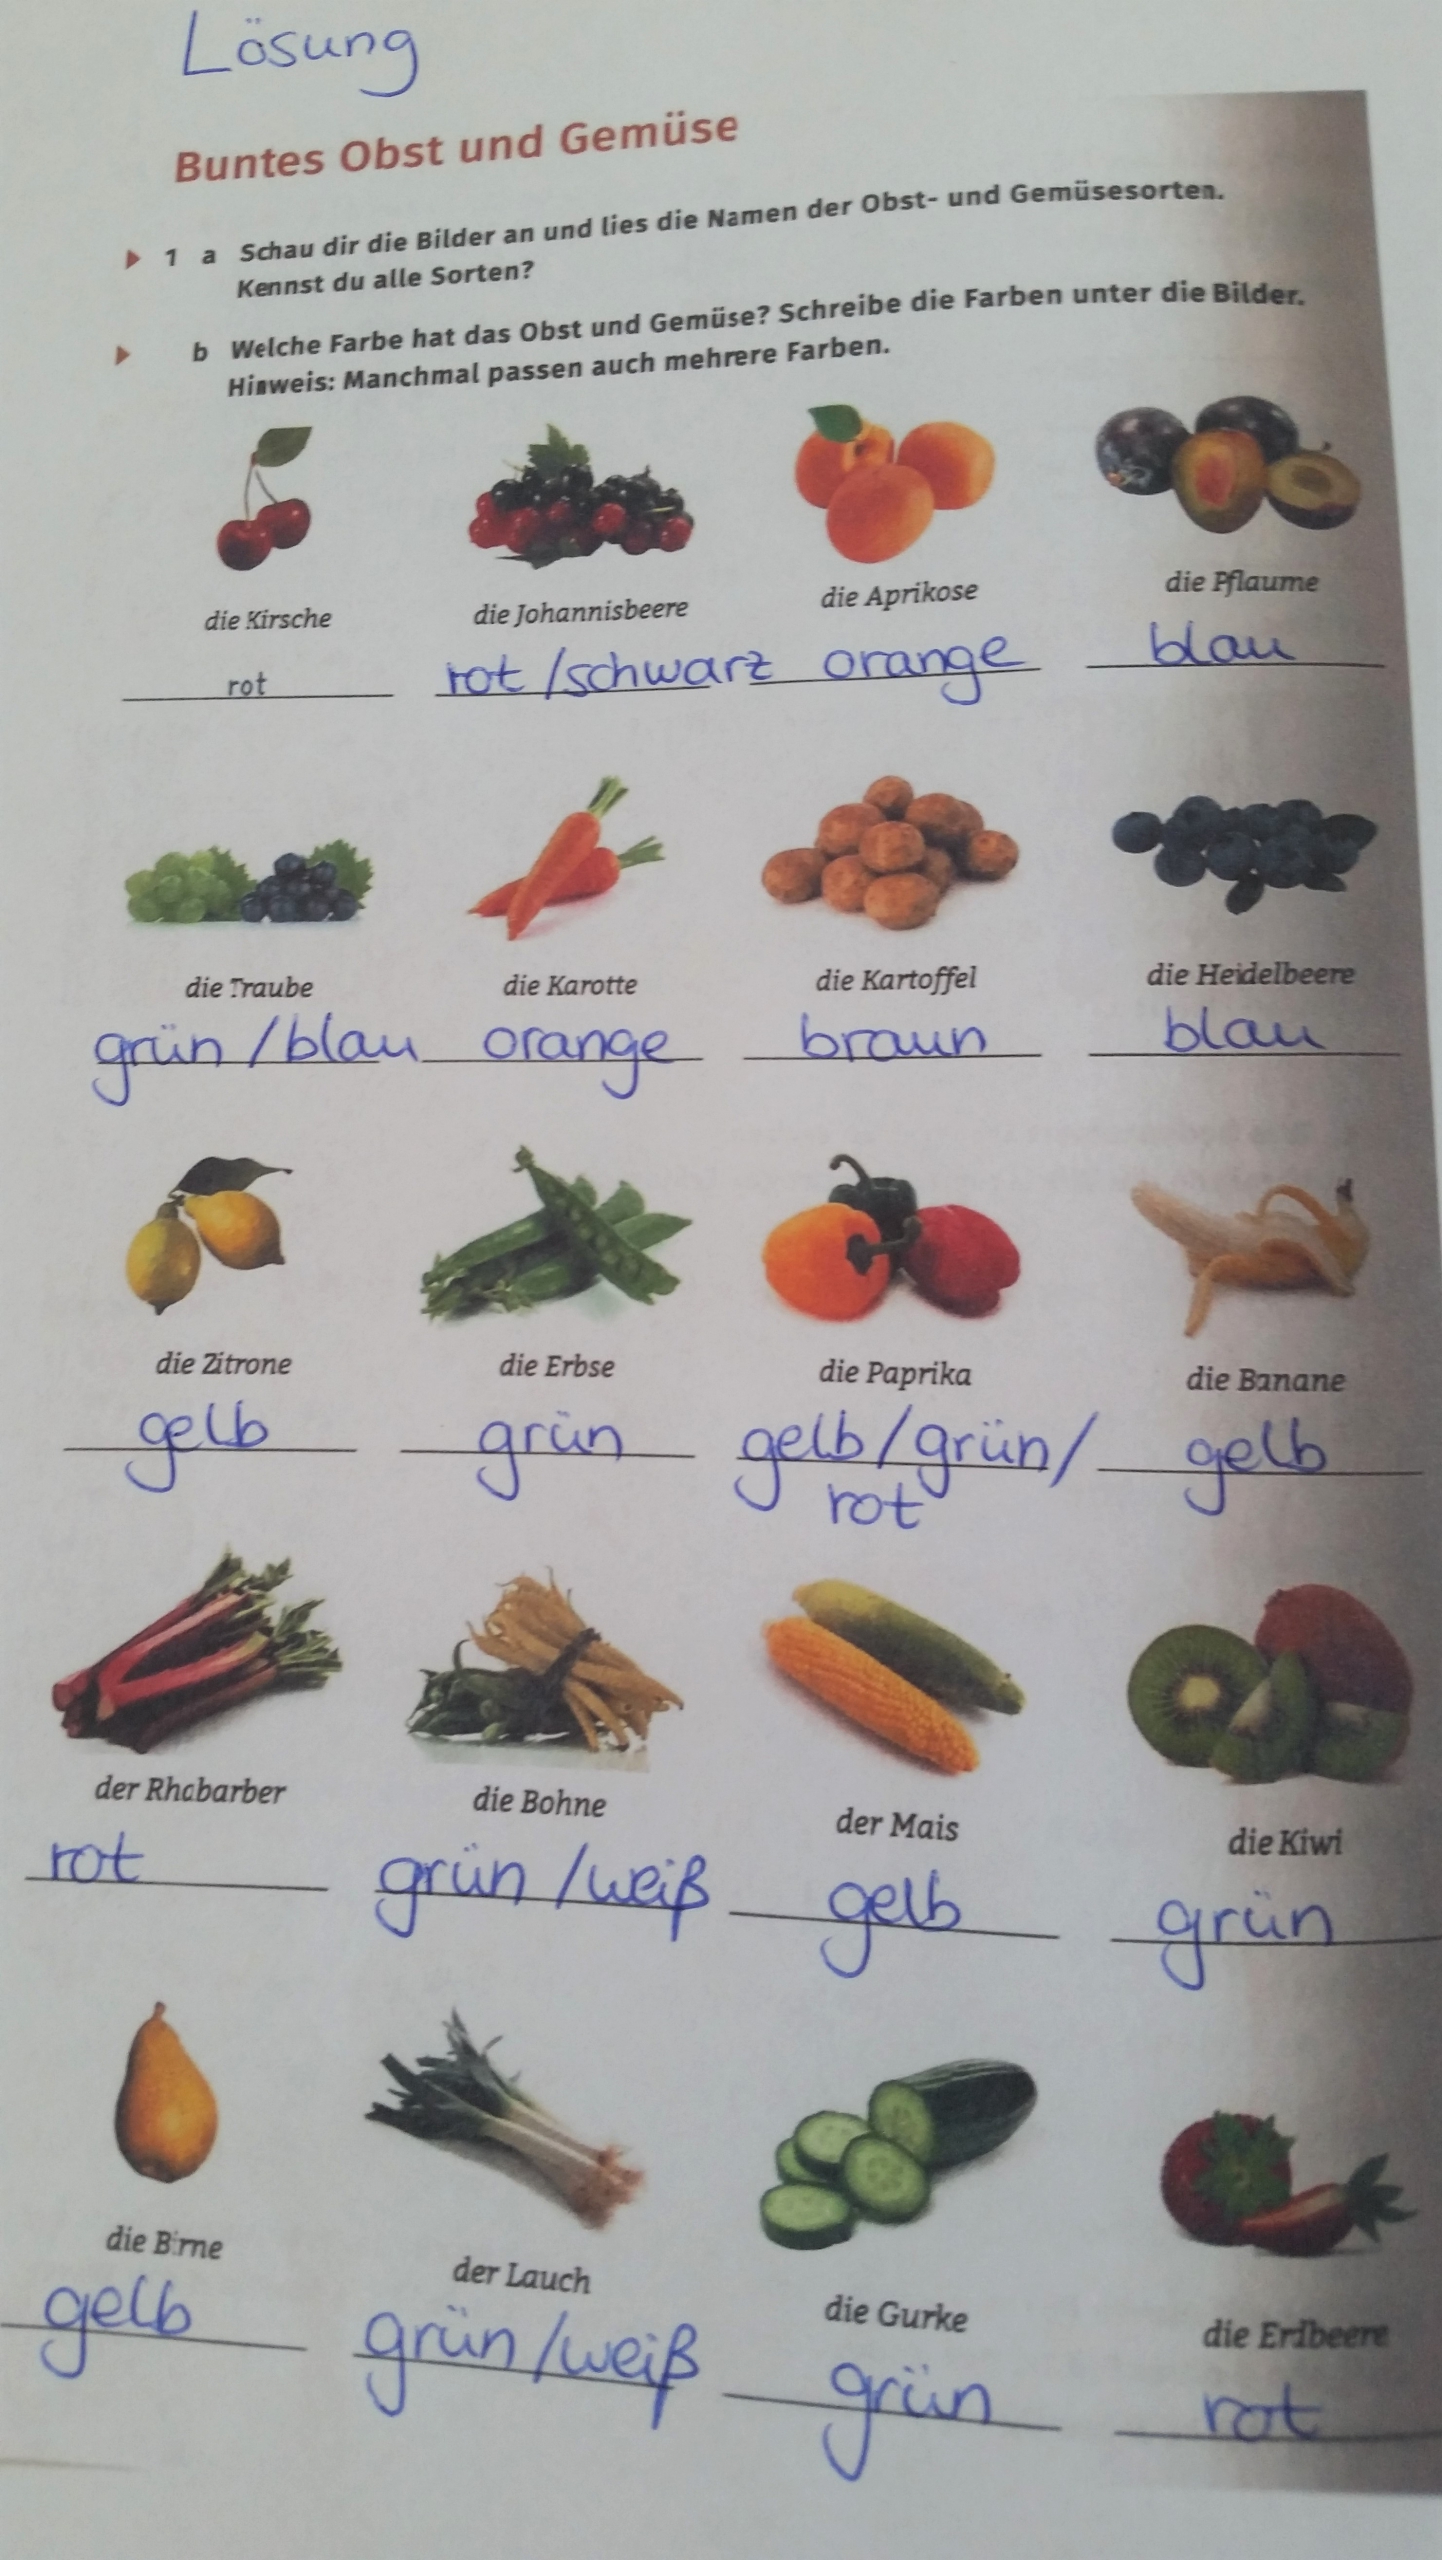 Lösung
Buntes Obst und Gemüse
1 a Schau dir die Bilder an und lies die Namen der Obst- und Gemüsesorten.
Kennst du alle Sorten?
b Welche Farbe hat das Obst und Gemüse? Schreibe die Farben unter die Bilder.
Hinweis: Manchmal passen auch mehrere Farben.
die Kirsche die Johannisbeere die Aprikose die Pflaume
rot rot /schwarz orange blau
die Traube die Karotte die Kartoffel die Heidelbeere
grün /blau orange braun blau
die Zitrone die Erbse die Paprika die Banane
gelb grün gelb/grün/ gelb
rot
der Rhabarber die Bohne der Mais die Kiwi
rot grün /weiß gelb grün
die Birne der Lauch die Gurke die Erdbeere
gelb grün/weiß grün rot